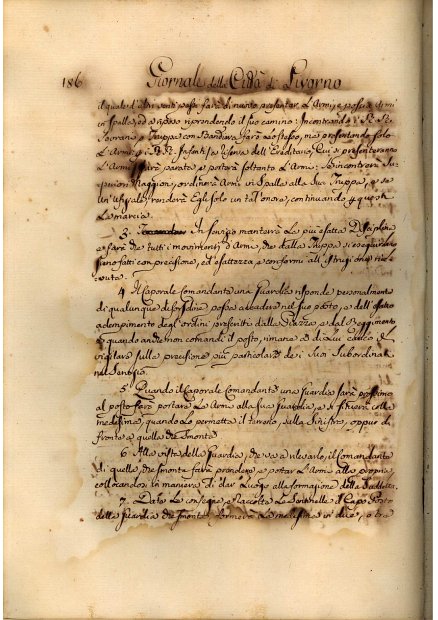 186 Giornali della Città di Livorno
di qua e di là venti passi farà di nuovo presentar l'Armi, e poscia
in Spalla, ed a riposo riprendendo il suo camino: Incontrando
Sovrano, e Truppa con Bandiera farà lo stesso, ma presentando solo
l'Armi; i Infanti, a riserva dell'Ereditario, Cui si presenteranno
l'Armi, farà parata, e porterà soltanto l'Armi: Se incontrerà
periori Maggiori, ordinerà Armi in Spalla alla Sua Truppa, e se
un' Uffiziale, renderà Egli solo un tal' onore, continuando
La marcia.
3. In servizio manterrà la più esatta Disciplina
e farà che tutti i movimenti d'Arma, che dalla Truppa si eseguiranno
siano fatti con precisione, ed esattezza, e conformi all'istruzione
vuta.
4. Il Caporale Comandante una Guardia risponde personalmente
di qualunque disordine possa accadere nel suo posto, e dell'esatto
adempimento degl'ordini prescritti dalla Piazza, e dal Reggimento
e quando anche non comandi il posto, rimane a di Lui carico il
vigilare sulla precisione più particolare de i Suoi Subordinati
nel Servizio.
5. Quando il Caporale Comandante una Guardia sarà prossimo
al posto farà portare le Armi alla sua Guardia, e si situerà colla
medesima, quando Lo permetta il terreno, sulla Sinistra, oppure di
fronte a quella che smonta.
6. Alla vista della Guardia, che va a rilevarlo, il Comandante
di quella, che smonta farà prendere, e portar l'Armi alla propria
collocandosi in maniera di dar Luogo alla formazione della
7. Date le consegne, e raccolte le Sentinelle il Capo Posto
della Guardia che smonta, formerà la medesima in due, o tre